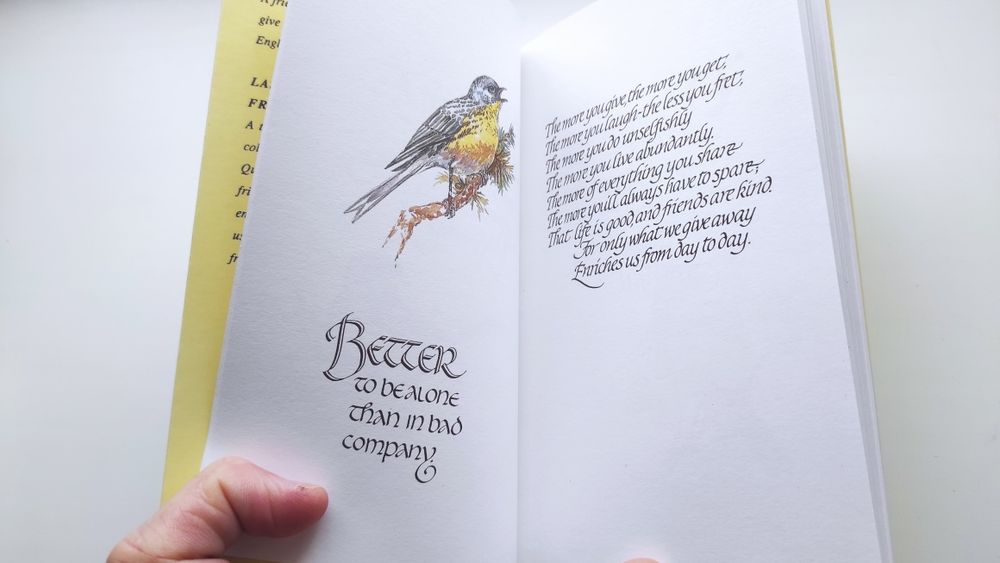 give
Engl
LA
FR
A t
col
Qu
fri
en
us
fr
Better
to be alone
than in bad
company.
The more you give, the more you get;
The more you laugh-the less you fret;
The more you do unselfishly
The more you live abundantly.
The more of everything you share
The more you'll always have to spare;
That life is good, and friends are kind.
For only what we give away
Enriches us from day to day.